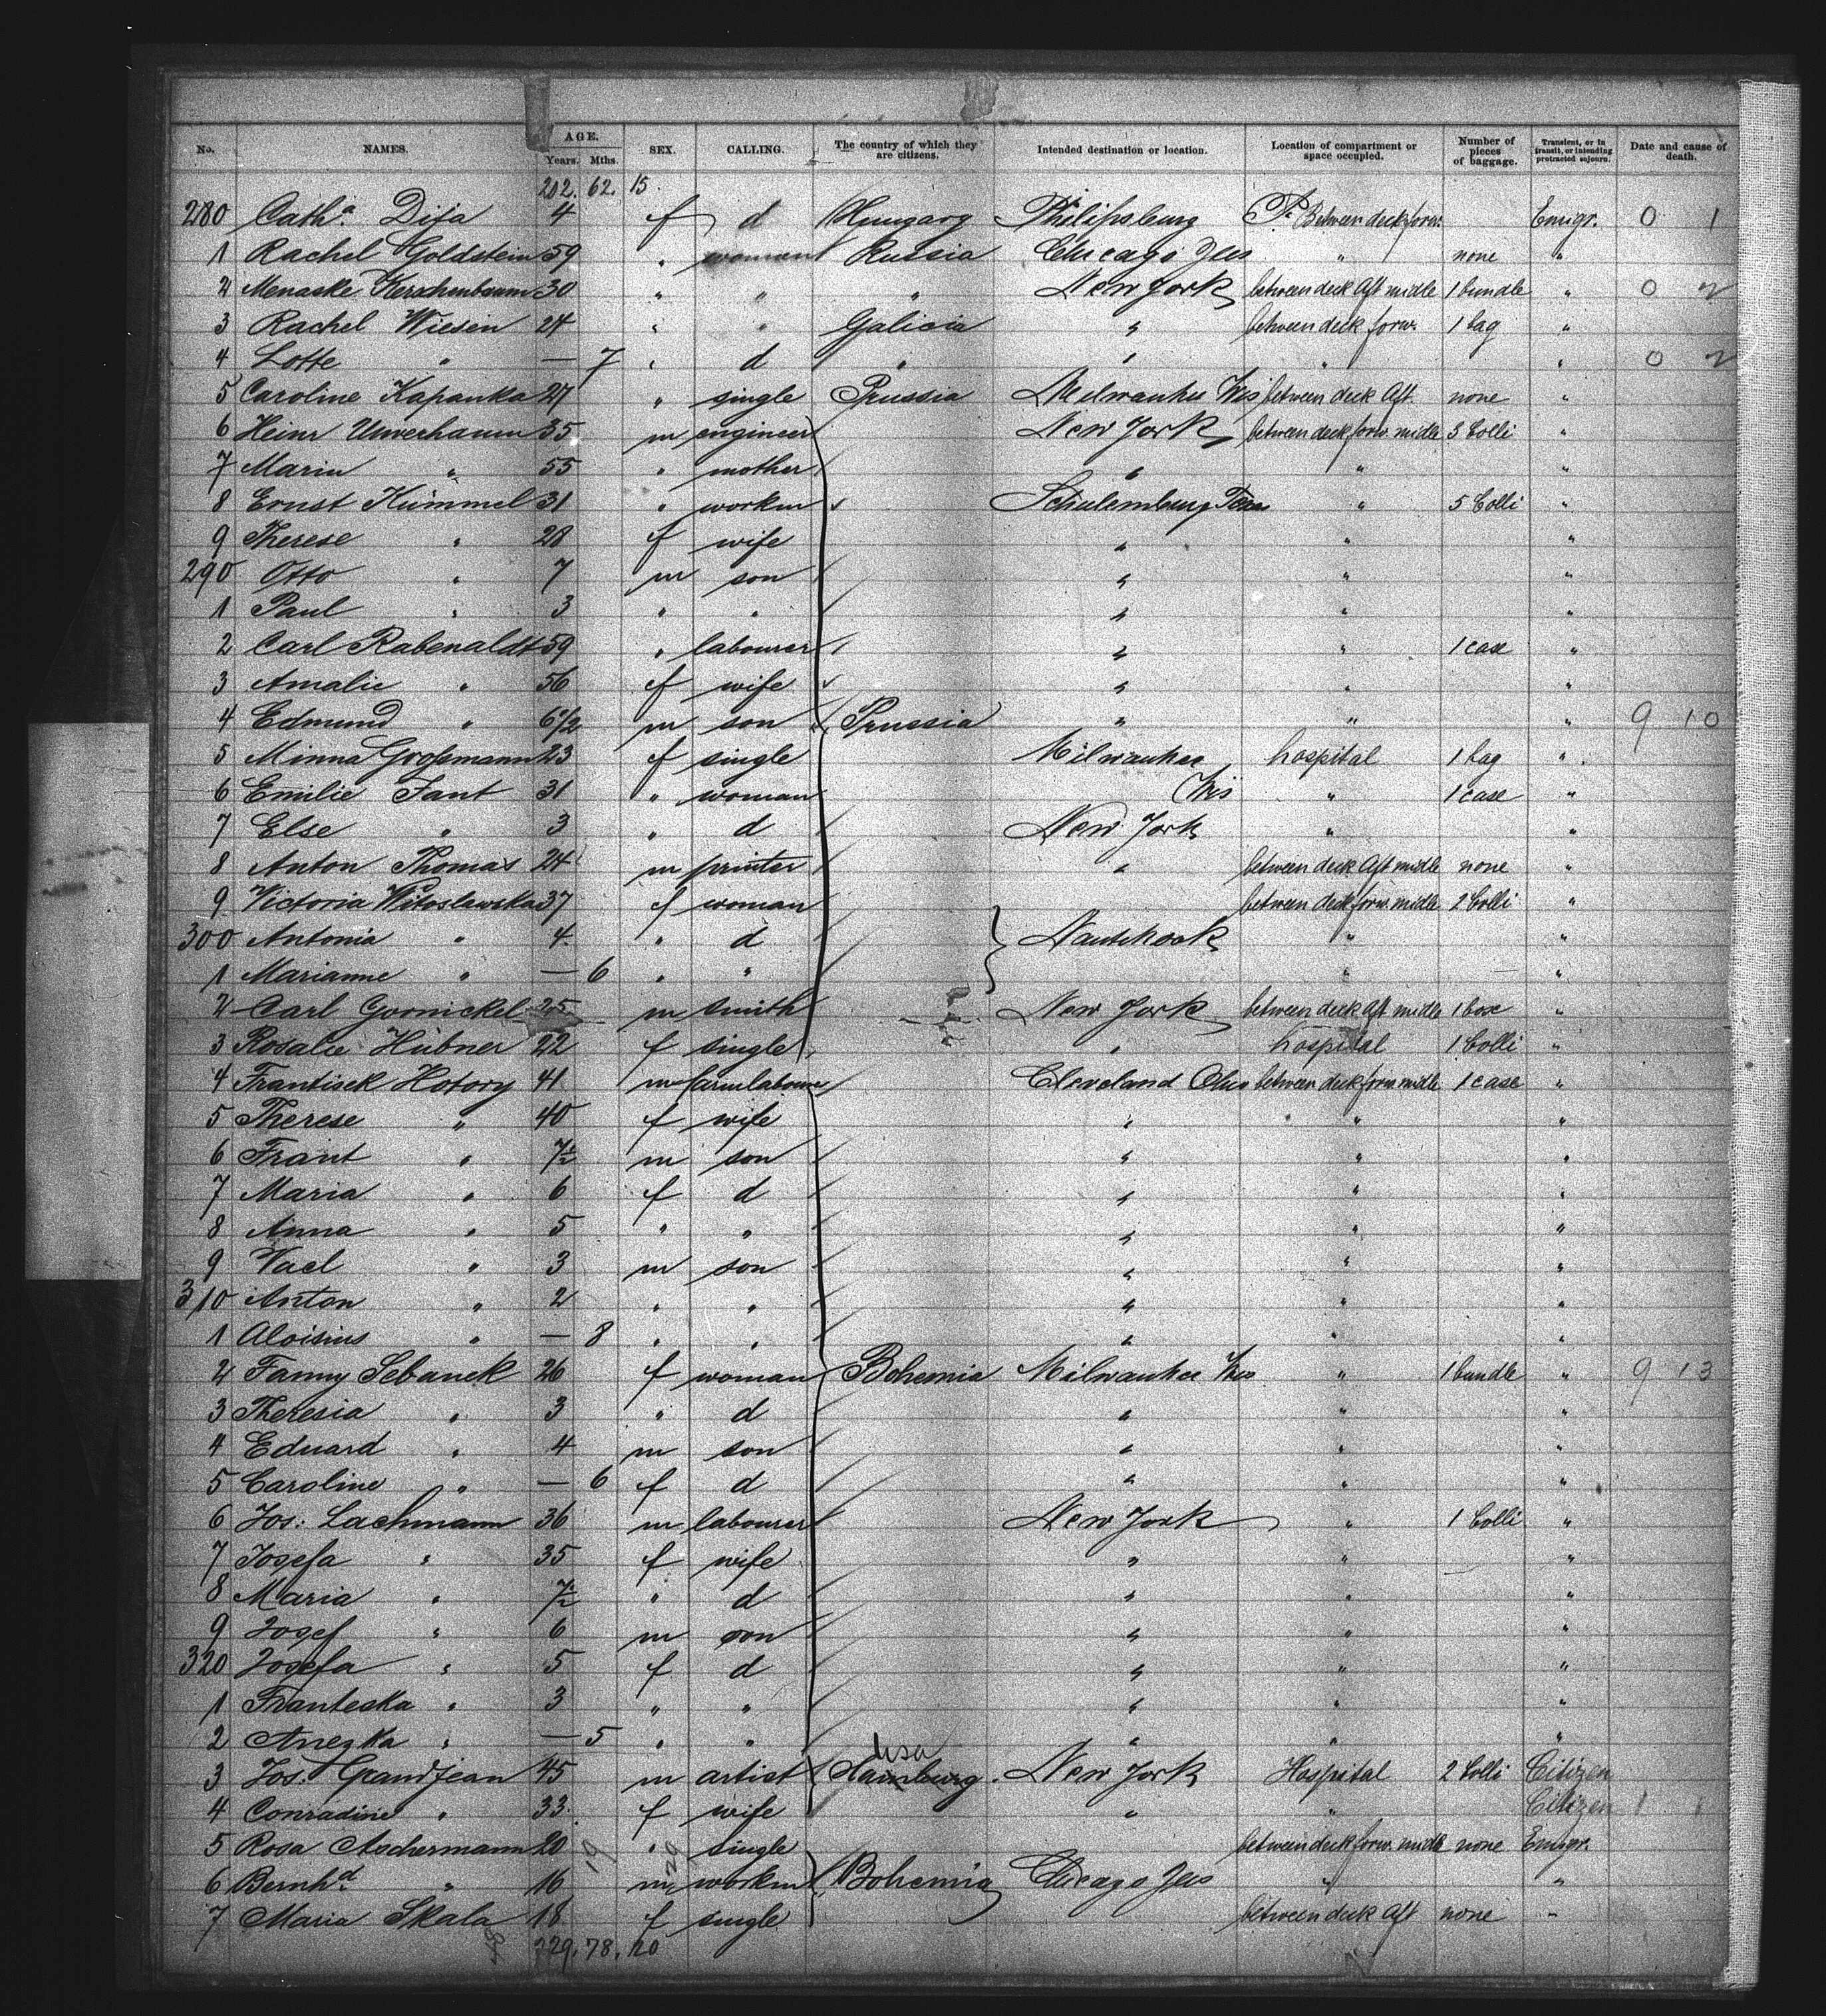 No. NAMES. AGE. Years. Mths. SEX. CALLING. The country of which they are citizens. Intended destination or location. Location of compartment or space occupied. Number of pieces of baggage. Transient, or in transit, or intending protracted sojourn. Date and cause of death.
202. 62. 15.
280 Cath.a Dija 4 f d Hungary Philipsburg Pa Between deck forw. Emigr. 0 1
1 Rachel Goldstein 59 " woman Russia Chicago Jlls " none "
2 Menaske Kerschenbaum 30 " " " New York between deck Aft midle 1 bundle " 0 2
3 Rachel Wiesen 24 " " Galicia " between deck forw. 1 bag "
4 Lotte " — 7 " d " " " " 0 2
5 Caroline Kapanka 27 " single Prussia Milwaukee Wis between deck Aft. none "
6 Heinr Unverhaum 35 m engineer New York between deck forw. midle 3 Colli "
7 Marin " 55 " mother " " "
8 Ernst Kümmel 31 " workm Schulemburg Texas " 5 Colli "
9 Therese " 28 f wife " " "
290 Otto " 7 m son " " "
1 Paul " 3 " " " " "
2 Carl Rabenaldt 59 " labourer " " 1 case "
3 Amalie " 56 f wife " " "
4 Edmund " 6 1/2 m son Prussia " " " 9 10
5 Minna Großmann 23 f single Milwaukee hospital 1 bag "
6 Emilie Fant 31 " woman Wis " 1 case "
7 Else " 3 " d New York " "
8 Anton Thomas 24 m printer " between deck Aft midle none "
9 Victoria Witoslawska 37 f woman between deck forw. midle 2 Colli "
300 Antonia " 4 " d " "
1 Marianne " — 6 " " " "
2 Carl Gornickel 25 m smith New York between deck Aft midle 1 box "
3 Rosalie Hübner 22 f single " hospital 1 Colli "
4 Frantisek Hotory 41 m farmlabourer Cleveland Ohio between deck forw. midle 1 case "
5 Therese " 40 f wife " " "
6 Frant " 7 1/2 m son " " "
7 Maria " 6 f d " " "
8 Anna " 5 " " " " "
9 Vacl " 3 m son " " "
310 Anton " 2 " " " " "
1 Aloisius " — 8 " " " " "
2 Fanny Sebanek 26 f woman Bohemia Milwaukee Wis " 1 bundle " 9 13
3 Theresia " 3 " d " " "
4 Eduard " 4 m son " " "
5 Caroline " — 6 f d " " "
6 Jos: Lachmann 36 m labourer New York " 1 Colli "
7 Josefa " 35 f wife " " "
8 Maria " 7 1/2 " d " " "
9 Josef " 6 m son " " "
320 Josefa " 5 f d " " "
1 Franteska " 3 " " " " "
2 Anezka " — 5 " " " " "
usa
3 Jos: Grandjean 45 m artist Hamburg. New York Hospital 2 Colli Citizen
4 Conradine " 33 f wife " " Citizen 1 1
5 Rosa Aschermann 20 " single between deck forw. midle none Emigr.
6 Bernh.d " 16 m workm Bohemia Chicago Jlls " "
7 Maria Skala 18 f single between deck Aft none "
229. 78. 20